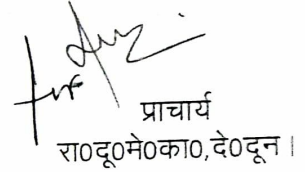 प्राचार्य
रा०दू०मे०का०,दे०दून।